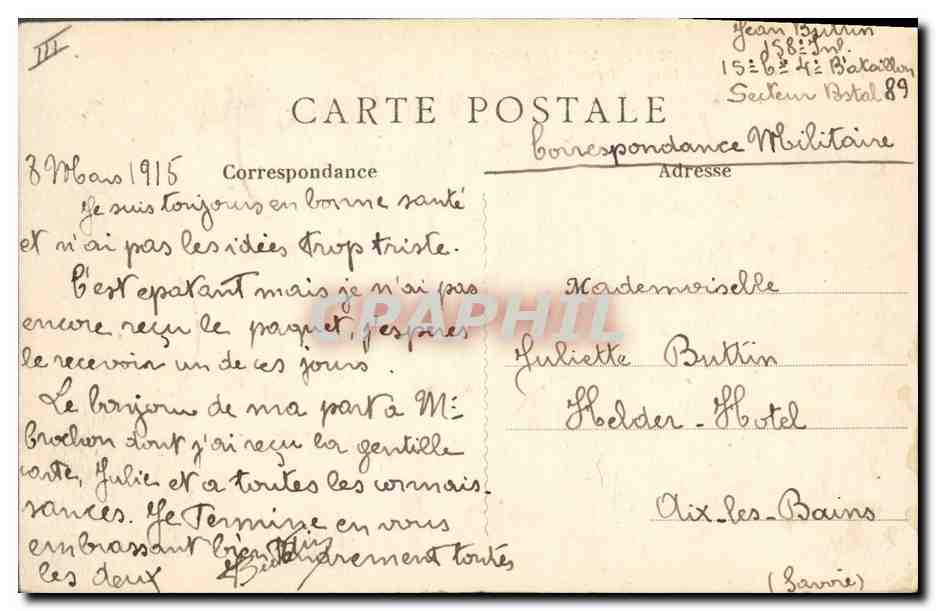 III
Jean Buttin
158e Inf.
15e Cie 4e Bataillon
Secteur Postal 89
CARTE POSTALE
Correspondance Militaire
8 Mars 1915
Correspondance
Adresse
Je suis toujours en bonne santé
et n'ai pas les idées trop triste.
C'est epatant mais je n'ai pas
encore reçu le paquet, j'espères
le recevoir un de ces jours.
Le bonjour de ma part a Me
Crochon dont j'ai reçu la gentille
carte, Julie et a toutes les connais-
sances. Je Termine en vous
embrassant bien tendrement toutes
les deux
Buttin
Mademoiselle
Juliette Buttin
Helder - Hotel
Aix-les-Bains
(Savoie)
CPAPHIL